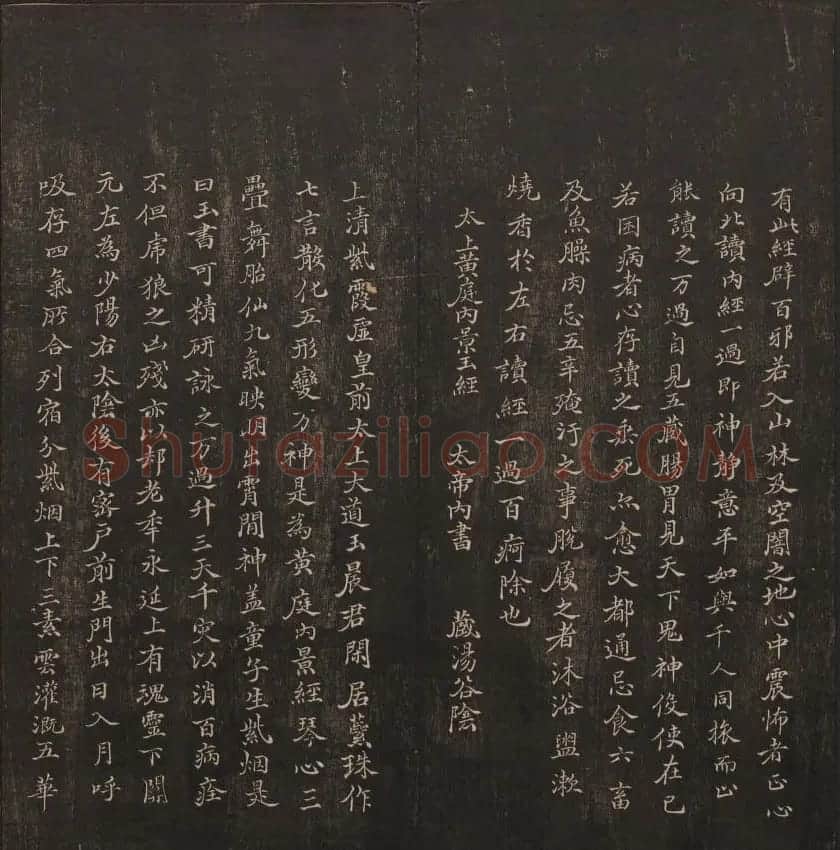 有此經辟百邪若入山林及空闇之地心中震怖者正心
向北讀內經一過即神靜意平如與千人同旅而止
能讀之万過自見五藏腸胃見天下鬼神役使在己
若困病者心存讀之垂死亦愈大都通忌食六畜
及魚臊肉忌五辛殗汙之事脫履之者沐浴盥漱
燒香於左右讀經一過百痾除也
太上黃庭內景玉經 太帝內書 藏湯谷陰
上清紫霞虛皇前太上大道玉晨君閑居蘂珠作
七言散化五形變万神是為黃庭內景經琴心三
疊舞胎仙九氣映明出霄間神盖童子生紫烟是
曰玉書可精研詠之万過升三天千灾以消百病痊
不但虎狼之凶殘亦以却老年永延上有魂靈下關
元左為少陽右太陰後有密戶前生門出日入月呼
吸存四氣所合列宿分紫烟上下三素雲灌溉五華
Shufaziliao.COM